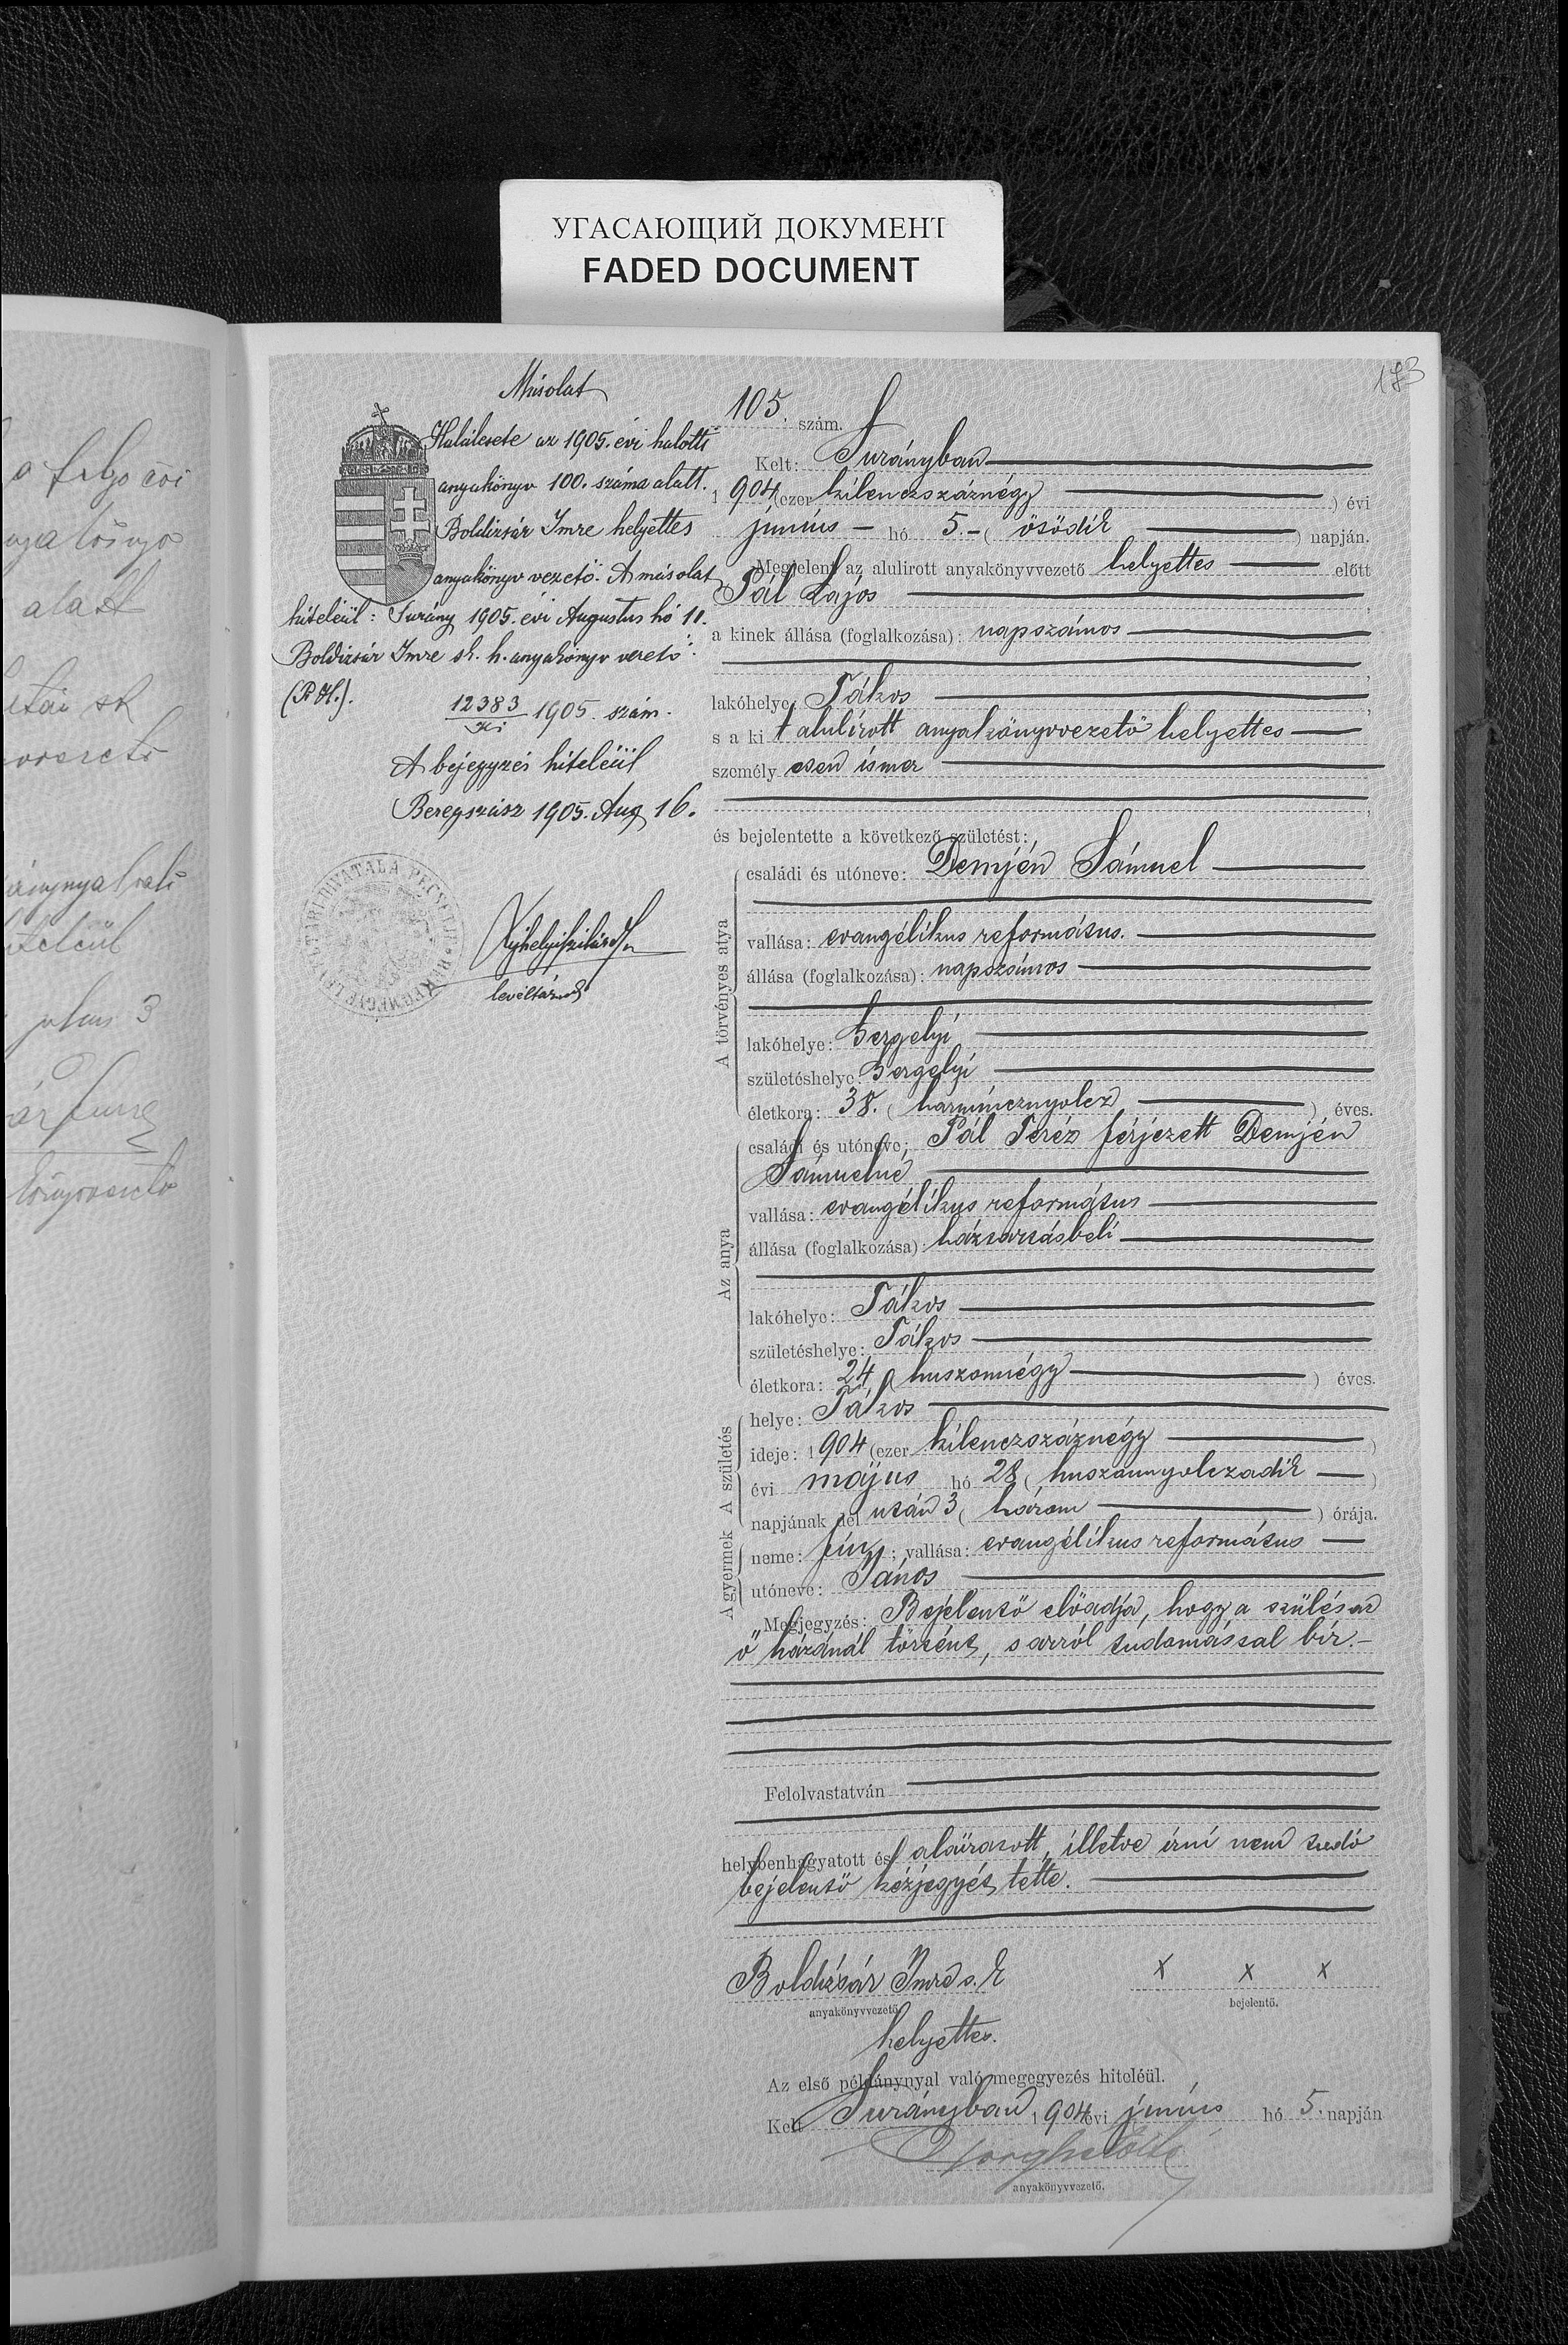 УГАСАЮЩИЙ ДОКУМЕНТ
FADED DOCUMENT
173
Másolat
Halálesete az 1905. évi halotti
anyakönyv 100. száma alatt.
Boldizsár Imre helyettes
anyakönyv vezető. A másolat
hiteléül: Surány 1905. évi Augustus hó 11.
Boldizsár Imre sk. h. anyakönyv vezető.
(P. H.).
12383 1905. szám.
A bejegyzés hiteléül
Beregszász 1905. Aug 16.
levéltárnok
105. szám.
Kelt: Surányban
1904 (ezer kilenczszáznégy ) évi
június – hó 5. – ( ötödik ) napján.
Megjelent az alulirott anyakönyvvezető helyettes előtt
Pál Lajos ,
a kinek állása (foglalkozása): napszámos
,
lakóhelye: Tákos ,
s a kit alulírott anyakönyvvezető helyettes
személyesen ismer
,
és bejelentette a következő születést:
A törvényes atya
családi és utóneve: Demjén Sámuel
vallása: evangélikus református.
állása (foglalkozása): napszámos
lakóhelye: Gergelyi
születéshelye: Gergelyi
életkora: 38. ( harmincznyolcz ) éves.
Az anya
családi és utóneve: Pál Teréz férjezett Demjén
Sámuelné
vallása: evangélikus református
állása (foglalkozása): háztartásbeli
lakóhelye: Tákos
születéshelye: Tákos
életkora: 24 ( huszonnégy ) éves.
A születés
helye: Tákos
ideje: 1904 (ezer kilenczszáznégy )
évi május hó 28 ( huszonnyolczadik )
napjának dél után 3 ( három ) órája.
A gyermek
neme: fiú ; vallása: evangélikus református
utóneve: János
Megjegyzés: Bejelentő előadja, hogy a szülés az
ő házánál történt, s arról tudomással bír.–
Felolvastatván
helybenhagyatott és aláíratott, illetve írni nem tudó
bejelentő kézjegyét tette.
Boldizsár Imre s. k x x x
anyakönyvvezető bejelentő.
helyettes.
Az első példánynyal való megegyezés hiteléül.
Kelt Surányban 1904 évi június hó 5. napján
anyakönyvvezető.